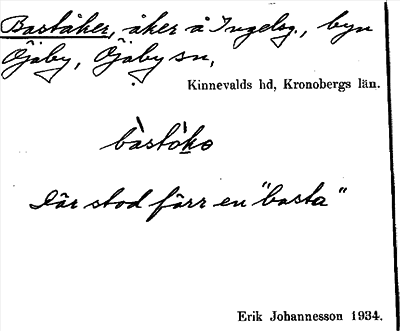 Baståker, åker å Ingelsg., byn
Öjaby, Öjaby sn,
Kinnevalds hd, Kronobergs län.
bàstò̀kə
Där stod förr en "basta"
Erik Johannesson 1934.